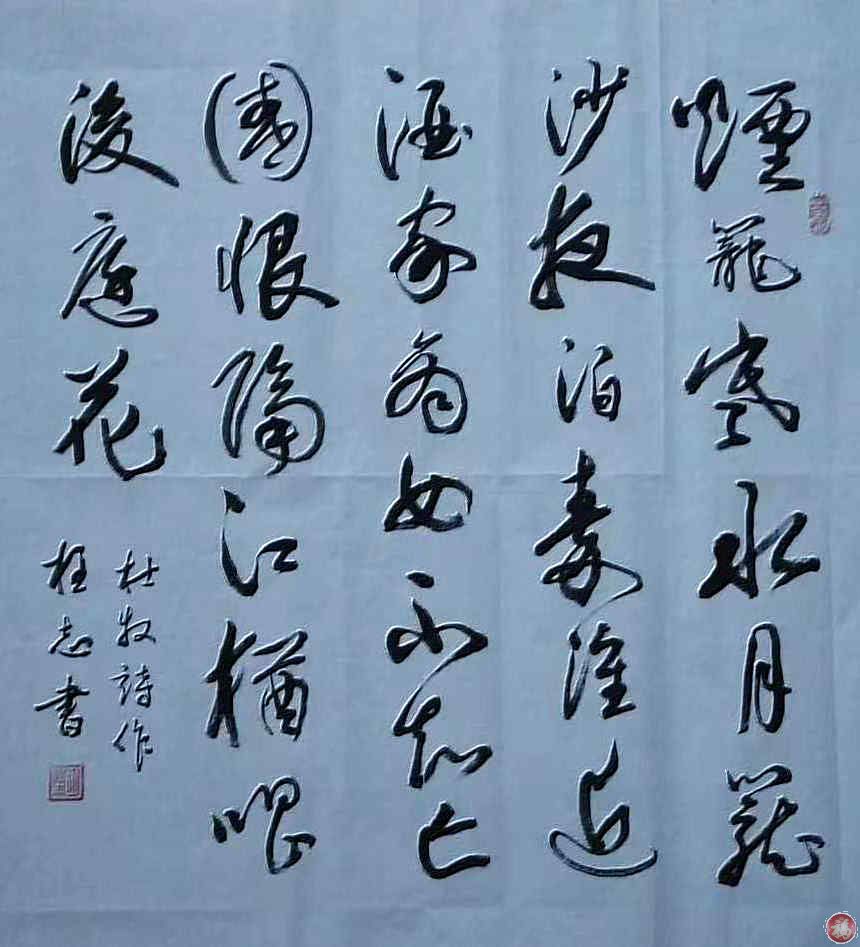 煙籠寒水月籠
沙夜泊秦淮近
酒家商女不知亡
國恨隔江猶唱
後庭花
杜牧詩作
志書
福